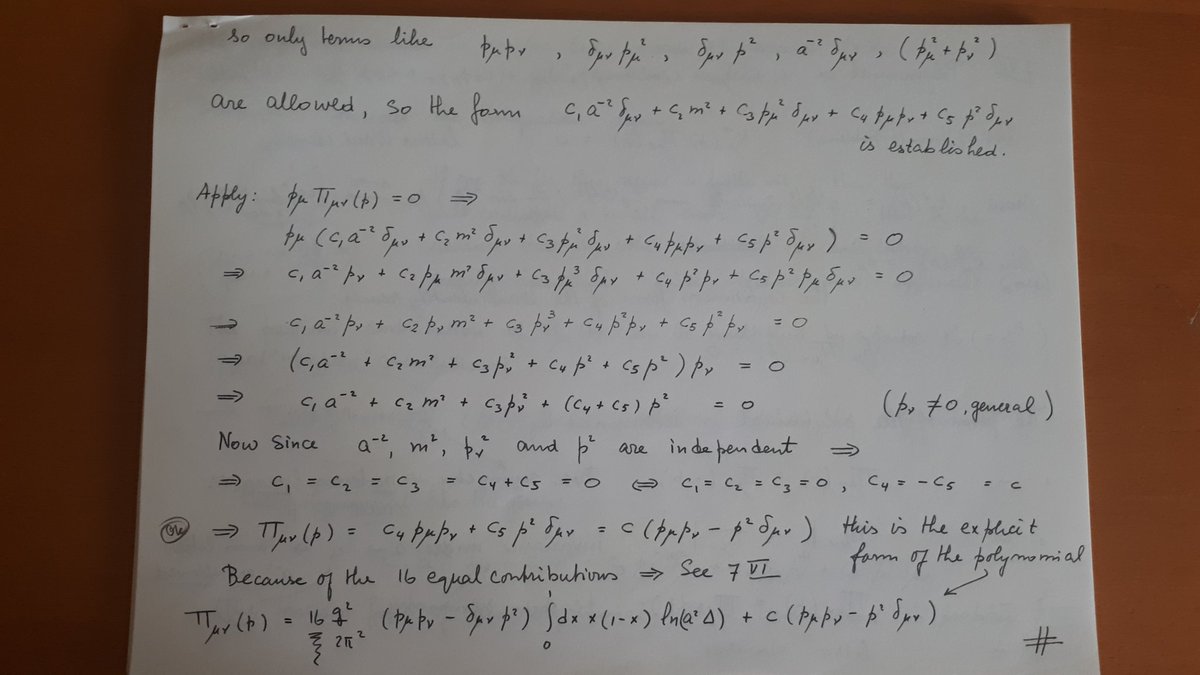 so only terms like pμpν , δμν pμ² , δμν p² , a⁻² δμν , (pμ² + pν²)
are allowed, so the form c₁ a⁻² δμν + c₂ m² + c₃ pμ² δμν + c₄ pμpν + c₅ p² δμν
is established.
Apply: pμ Πμν(p) = 0 ⇒
pμ (c₁ a⁻² δμν + c₂ m² δμν + c₃ pμ² δμν + c₄ pμpν + c₅ p² δμν) = 0
⇒ c₁ a⁻² pν + c₂ pμ m² δμν + c₃ pμ³ δμν + c₄ p² pν + c₅ p² pμ δμν = 0
⇒ c₁ a⁻² pν + c₂ pν m² + c₃ pν³ + c₄ p² pν + c₅ p² pν = 0
⇒ (c₁ a⁻² + c₂ m² + c₃ pν² + c₄ p² + c₅ p²) pν = 0
⇒ c₁ a⁻² + c₂ m² + c₃ pν² + (c₄ + c₅) p² = 0 (pν ≠ 0, general)
Now since a⁻², m², pν² and p² are independent ⇒
⇒ c₁ = c₂ = c₃ = c₄ + c₅ = 0 ⇔ c₁ = c₂ = c₃ = 0 , c₄ = - c₅ = c
⇒ Πμν(p) = c₄ pμpν + c₅ p² δμν = c (pμpν - p² δμν) this is the explicit
form of the polynomial
Because of the 16 equal contributions ⇒ See 7 VI
Πμν(p) = 16 g²/2π² (pμpν - δμν p²) ∫₀¹ dx x(1-x) ln(a²Δ) + c (pμpν - p² δμν)
#